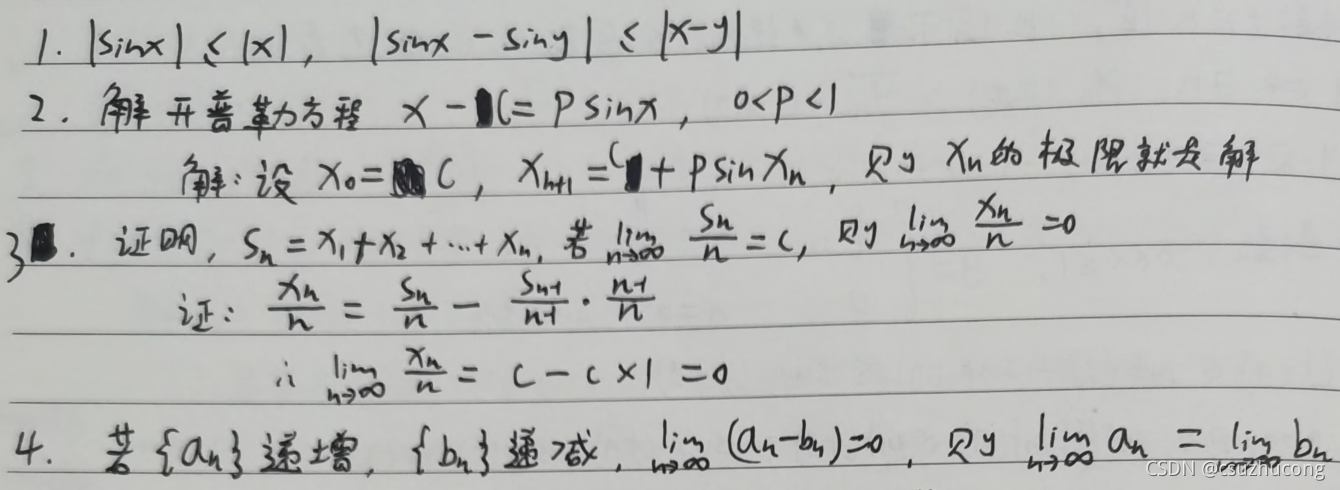 1. |sinx| ≤ |x|, |sinx - siny| ≤ |x-y|
2. 解开普勒方程 x - C = P sinx, 0<P<1
解: 设 x₀ = C, xₙ₊₁ = C + P sin xₙ, 则 xₙ 的极限就是解
3. 证明, Sₙ = x₁ + x₂ + ⋯ + xₙ, 若 lim_{n→∞} Sₙ/n = c, 则 lim_{n→∞} xₙ/n = 0
证: xₙ/n = Sₙ/n - Sₙ₋₁/(n-1) · (n-1)/n
∴ lim_{n→∞} xₙ/n = c - c × 1 = 0
4. 若{aₙ}递增, {bₙ}递减, lim_{n→∞} (aₙ-bₙ)=0, 则 lim_{n→∞} aₙ = lim_{n→∞} bₙ
CSDN @csuzhucong